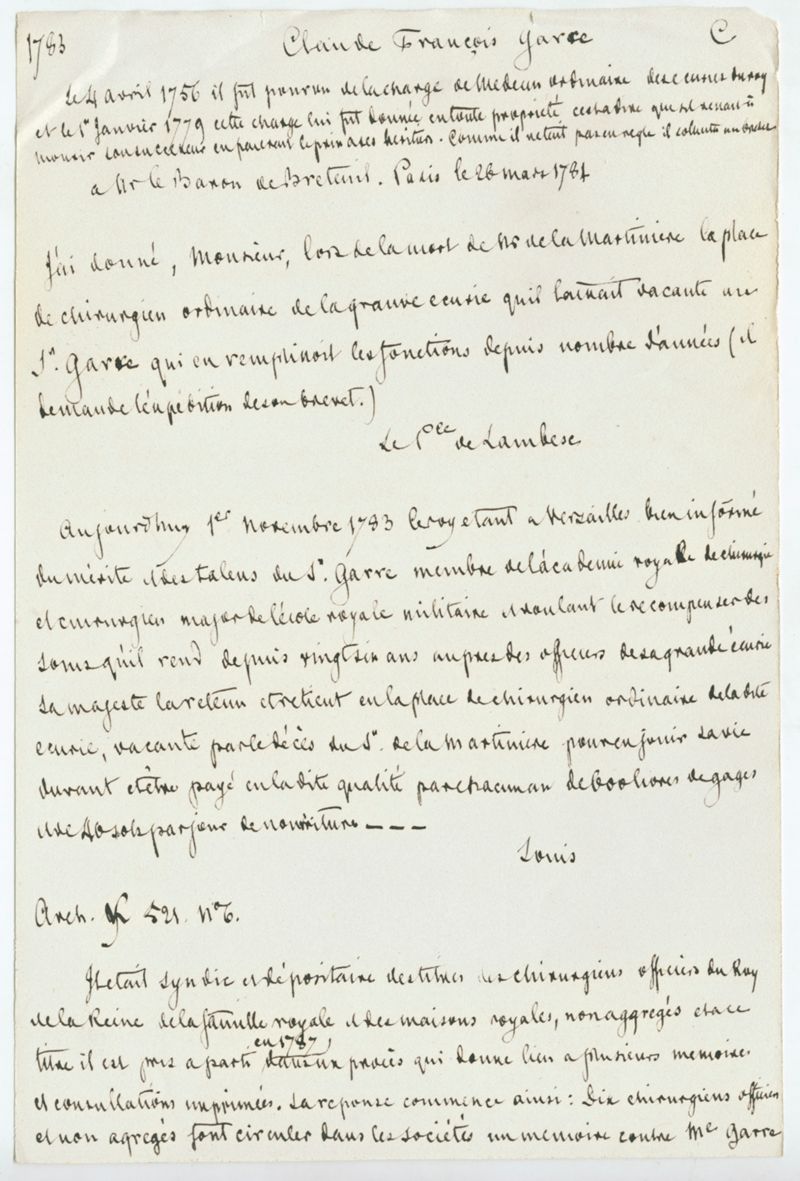 1783 Claude François Garre C
Le 4 avril 1756 il fut pourvu de la charge de Medecin ordinaire des ecuries du roy
et le 1er Janvier 1779 cette charge lui fut donnée en toute propriété cest a dire que
mourir son successeur en payerait le prix a ses heritiers. Comme il netait pas en regle il un brevet
a Mr le Baron de Breteuil. Paris le 26 mars 1784
J'ai donné, Monsieur, lors de la mort de Mr de la Martiniere la place
de chirurgien ordinaire de la grande ecurie qu'il laissait vacante au
Sr. Garre qui en remplissoit les fonctions depuis nombre d'années (il
demande l'expédition de son brevet.)
Le Pce de Lambesc
Aujourdhuy 1er Novembre 1783 le roy etant a Versailles bien informé
du mérite et des talens du Sr. Garre membre de l'académie royale de chirurgie
et chirurgien major de l'école royale militaire et voulant le recompenser des
soins qu'il rend depuis vingt six ans aupres des officiers de sa grande écurie
sa majesté la retenu et retient en la place de chirurgien ordinaire de la dite
ecurie, vacante par le décès du Sr. de la Martiniere pour en jouir sa vie
durant et être payé en la dite qualité par chacun an de 600 livres de gages
et de 40 sols par jour de nourriture - - -
Louis
Arch. 521. No 6.
Il etait syndic et dépositaire des titres des chirurgiens officiers du Roy
de la Reine de la famille royale et des maisons royales, non aggregés et a ce
titre il est pris a parti en 1787, dans un procès qui donne lieu a plusieurs memoires
et consultations imprimées. La reponse commence ainsi: Dix chirurgiens officiers
et non agregés font circuler dans les sociétés un memoire contre Me Garre